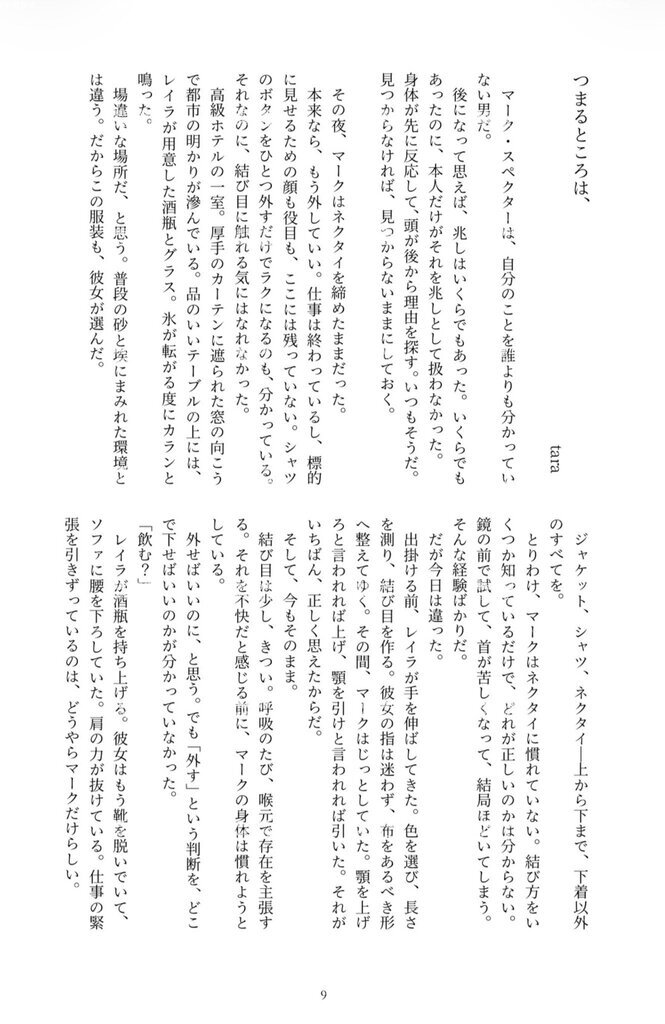 つまるところは、
tara
マーク・スペクターは、自分のことを誰よりも分かってい
ない男だ。
後になって思えば、兆しはいくらでもあった。いくらでも
あったのに、本人だけがそれを兆しとして扱わなかった。
身体が先に反応して、頭が後から理由を探す。いつもそうだ。
見つからなければ、見つからないままにしておく。
その夜、マークはネクタイを締めたままだった。
本来なら、もう外していい。仕事は終わっているし、標的
に見せるための顔も役目も、ここには残っていない。シャツ
のボタンをひとつ外すだけでラクになるのも、分かっている。
それなのに、結び目に触れる気にはなれなかった。
高級ホテルの一室。厚手のカーテンに遮られた窓の向こう
で都市の明かりが滲んでいる。品のいいテーブルの上には、
レイラが用意した酒瓶とグラス。氷が転がる度にカランと
鳴った。
場違いな場所だ、と思う。普段の砂と埃にまみれた環境と
は違う。だからこの服装も、彼女が選んだ。
ジャケット、シャツ、ネクタイ――上から下まで、下着以外
のすべてを。
とりわけ、マークはネクタイに慣れていない。結び方をい
くつか知っているだけで、どれが正しいのかは分からない。
鏡の前で試して、首が苦しくなって、結局ほどいてしまう。
そんな経験ばかりだ。
だが今日は違った。
出掛ける前、レイラが手を伸ばしてきた。色を選び、長さ
を測り、結び目を作る。彼女の指は迷わず、布をあるべき形
へ整えてゆく。その間、マークはじっとしていた。顎を上げ
ろと言われれば上げ、顎を引けと言われれば引いた。それが
いちばん、正しく思えたからだ。
そして、今もそのまま。
結び目は少し、きつい。呼吸のたび、喉元で存在を主張す
る。それを不快だと感じる前に、マークの身体は慣れようと
している。
外せばいいのに、と思う。でも「外す」という判断を、どこ
で下せばいいのかが分かっていなかった。
「飲む？」
レイラが酒瓶を持ち上げる。彼女はもう靴を脱いでいて、
ソファに腰を下ろしていた。肩の力が抜けている。仕事の緊
張を引きずっているのは、どうやらマークだけらしい。
9